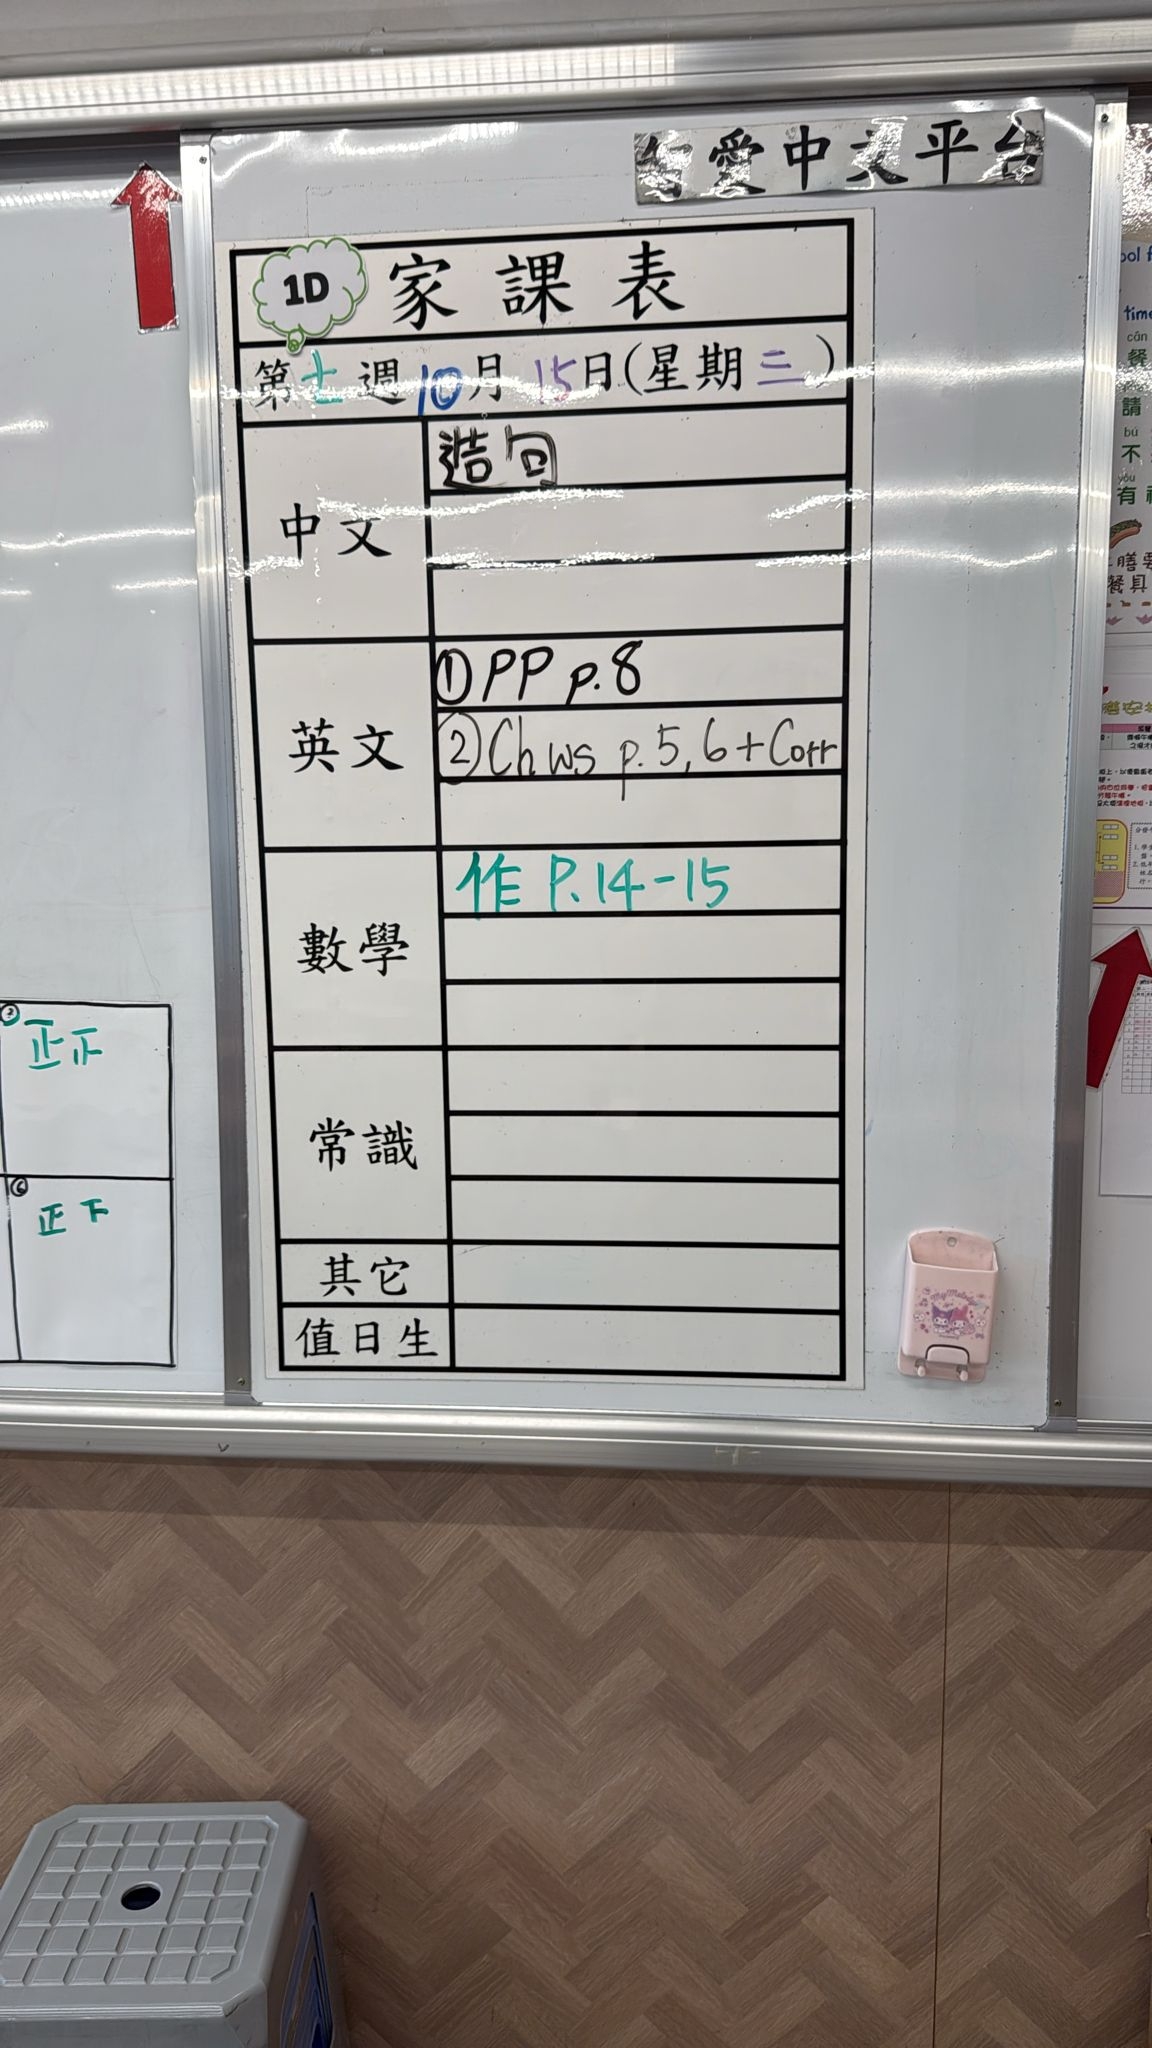 愛中文平台
1D 家課表
第十週10月15日(星期三)
中文
造句
英文
①PP p.8
②Ch ws p.5,6+Corr
數學
作 P.14-15
常識
其它
值日生
正正
⑥
正下
time
cān
餐
請
bú
不
yǒu
有
膳
餐具
My Melody